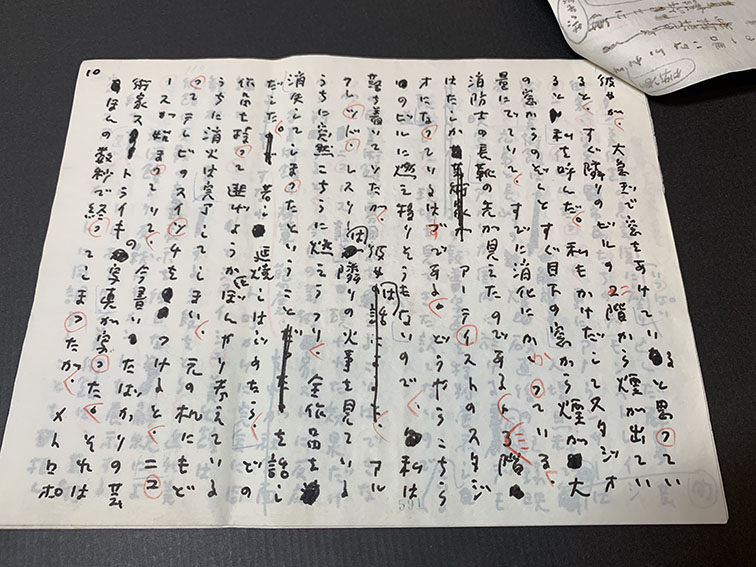 10
彼女が、大急ぎで窓をあけていると思ってい
ると、すぐ隣りのビルの2階から煙が出てい
ると私を呼んだ。私もかけだしてスタジオ
の窓からのぞくとすぐ目下の窓から煙が大
量にでていて、すでに消化にかかっている、
消防士の長靴の先が見えたのである。3階
はたしかアーティストのスタジ
オになっているはずである。どうやらこちら
のビルに燃え移りそうもないので、私は
落ち着いていたが、彼女の話によると、アル
フレッド・レスリーは隣りの火事を見ている
うちに突然こちらに燃えうつり、全作品を
消失してしまったということを話し
だした。若し延焼しはじめたら、どの
作品を持って逃げようかぼんやり考えている
うちに消火は完了してしまい、元の机にもど
ってテレビのスイッチをつけると、ニュ
ースが始まっていて、今書いたばかりの芸
術家ストライキの写真が写った。それは
ほんの数秒で終ってしまったが、メトロポ
591